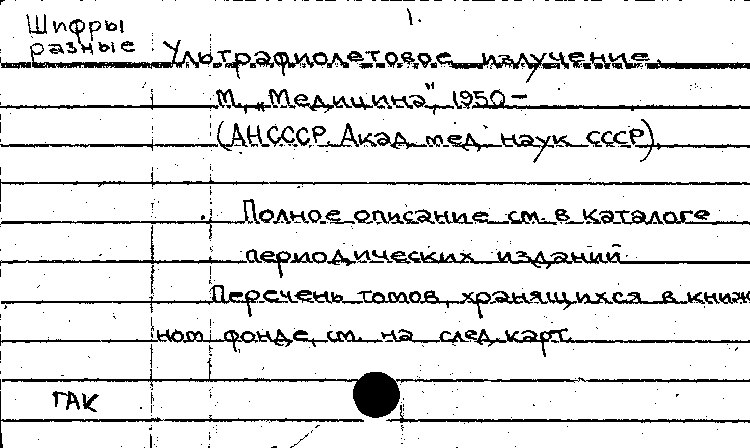 1.
Шифры
разные
Ультрафиолетовое излучение.
М., „Медицина", 1950–
(АН СССР. Акад. мед. наук СССР).
Полное описание см. в каталоге
периодических изданий
Перечень томов, хранящихся в книж
ном фонде, см. на след. карт.
ГАК